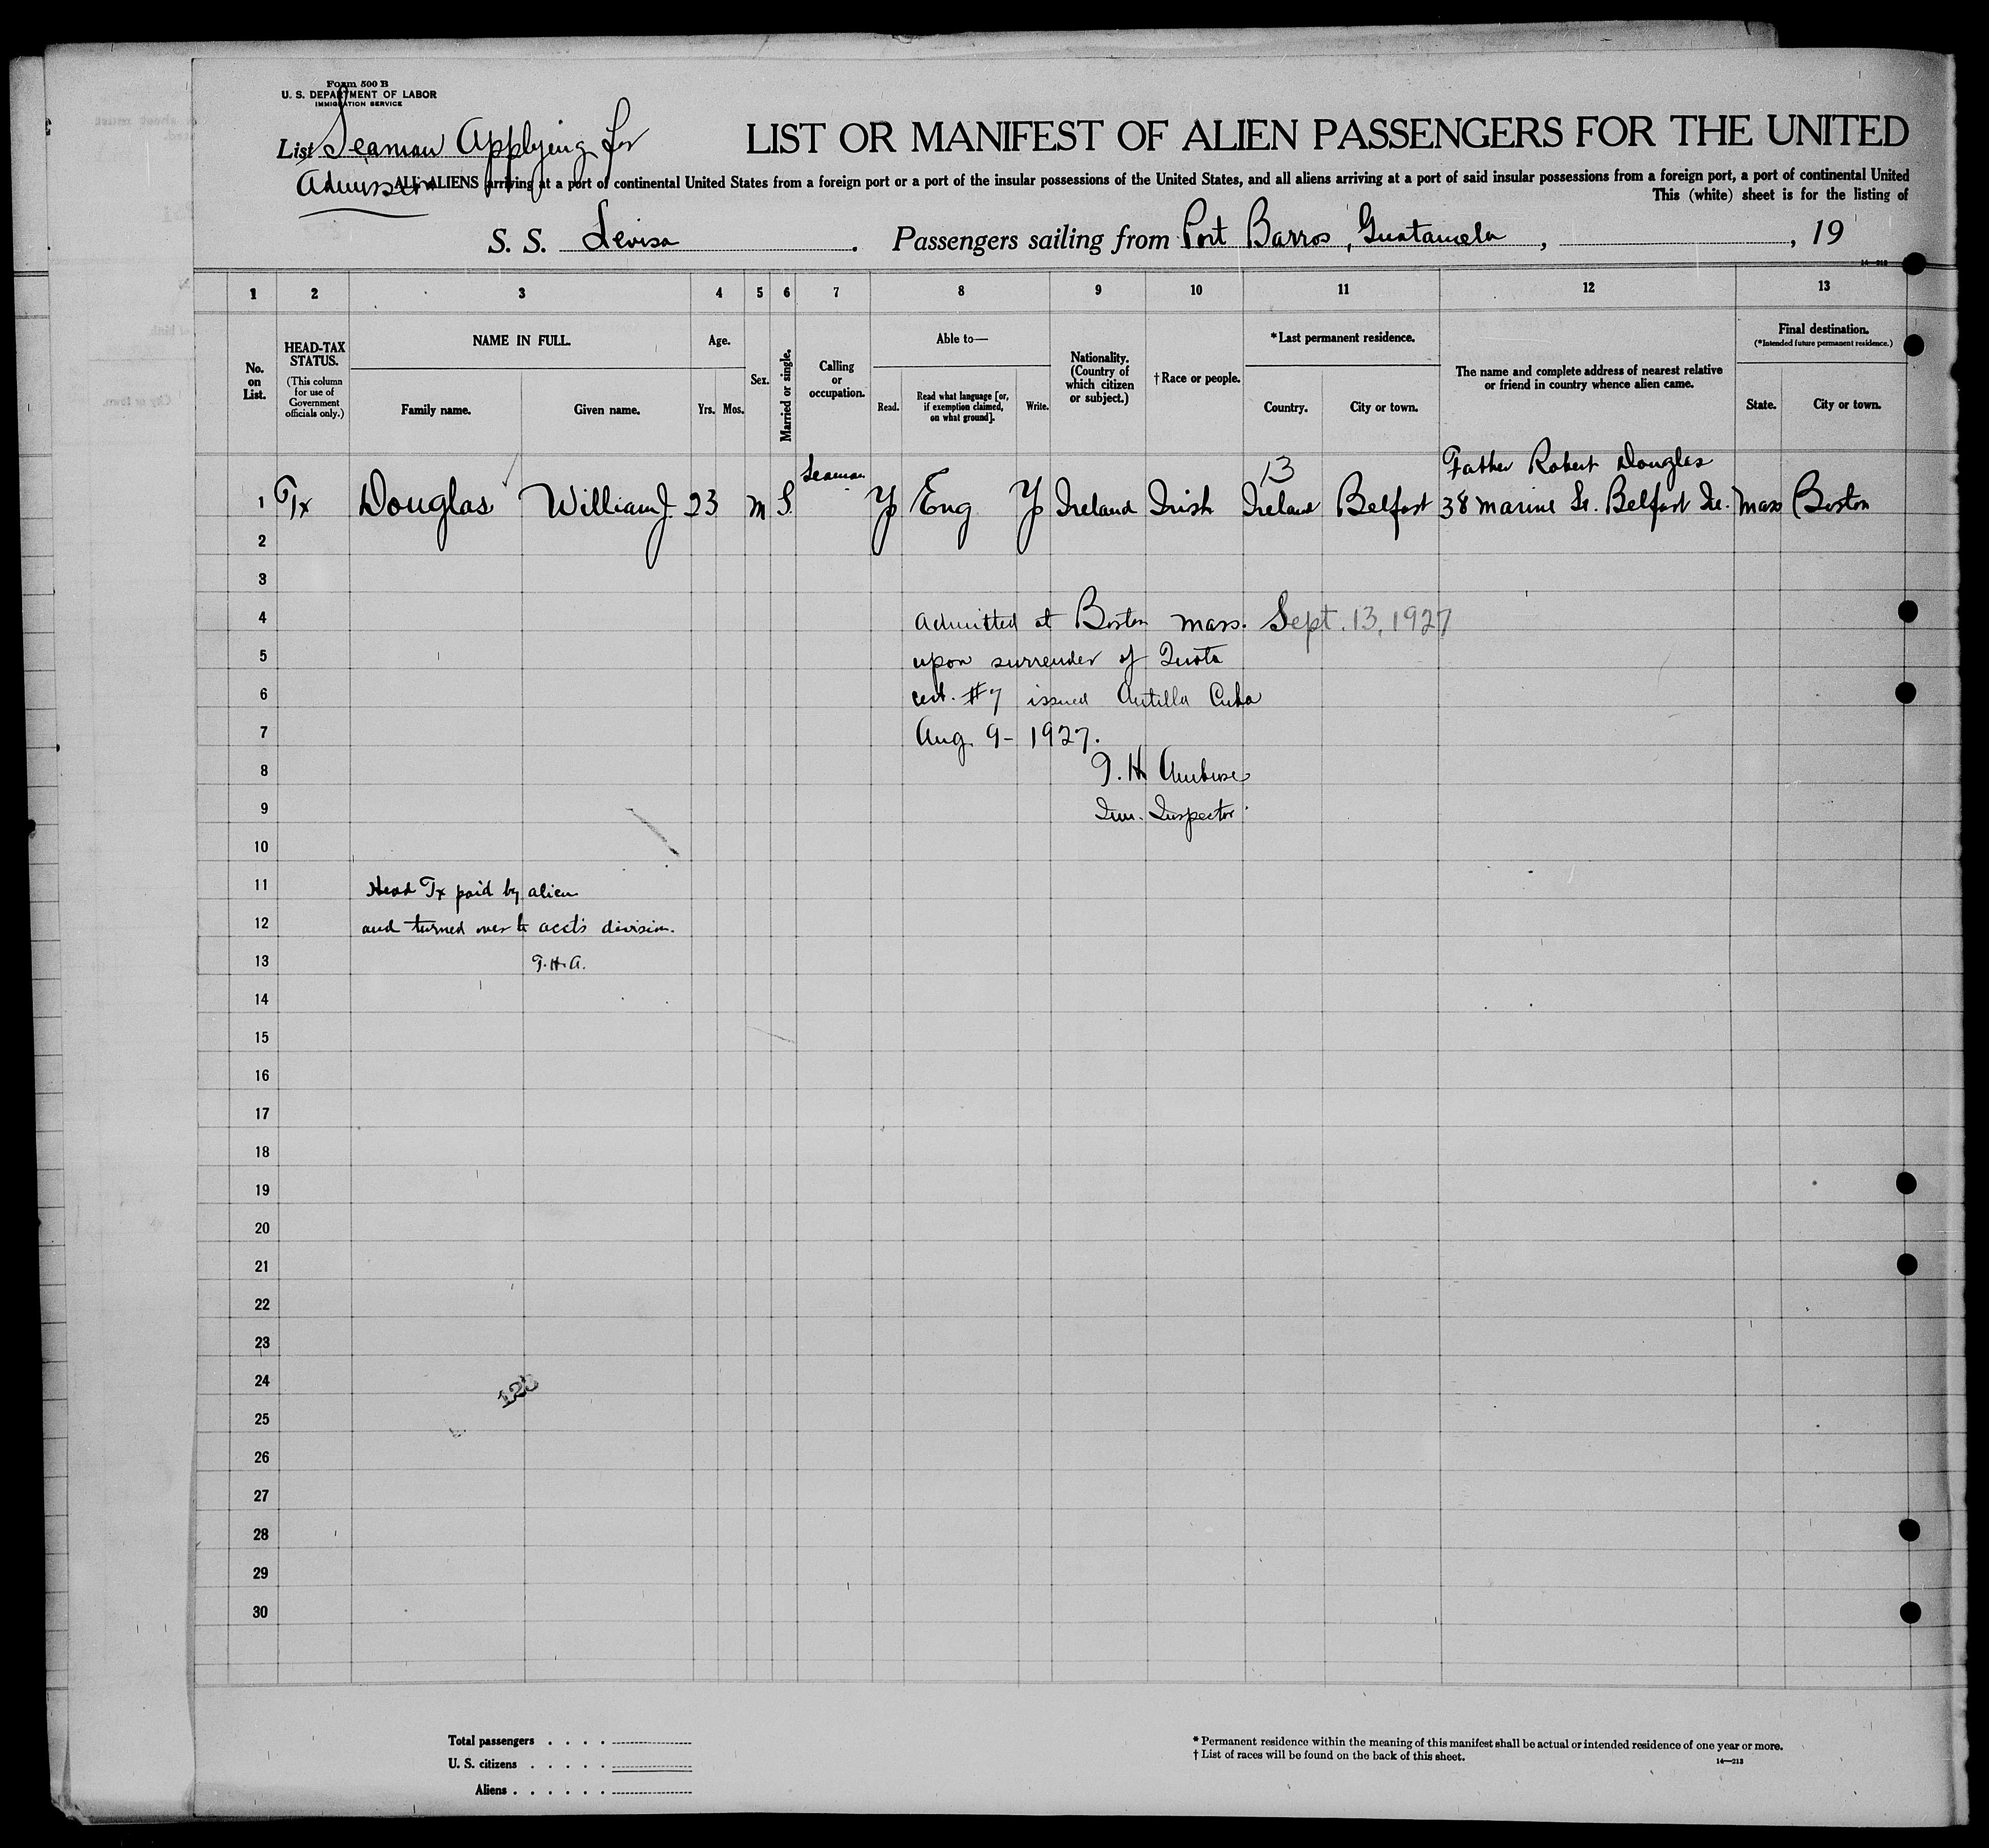 Form 500 B
U. S. DEPARTMENT OF LABOR
IMMIGRATION SERVICE
List Seaman Applying for
Admission
LIST OR MANIFEST OF ALIEN PASSENGERS FOR THE UNITED
ALL ALIENS arriving at a port of continental United States from a foreign port or a port of the insular possessions of the United States, and all aliens arriving at a port of said insular possessions from a foreign port, a port of continental United
This (white) sheet is for the listing of
S. S. Levisa . Passengers sailing from Port Barros, Guatamela , , 19
14—213
1 2 3 4 5 6 7 8 9 10 11 12 13
No. on List.
HEAD-TAX STATUS.
(This column for use of Government officials only.)
NAME IN FULL.
Family name. Given name.
Age.
Yrs. Mos.
Sex.
Married or single.
Calling or occupation.
Able to—
Read. Read what language [or, if exemption claimed, on what ground]. Write.
Nationality. (Country of which citizen or subject.)
†Race or people.
*Last permanent residence.
Country. City or town.
The name and complete address of nearest relative or friend in country whence alien came.
Final destination.
(*Intended future permanent residence.)
State. City or town.
Seaman 13 Father Robert Douglas
1 Tx Douglas William J. 23 m S. Y Eng Y Ireland Irish Ireland Belfast 38 marine St. Belfast Ire. Mass Boston
2
3
4 Admitted at Boston Mass. Sept. 13, 1927
5 upon surrender of Quota
6 cert. #7 issued Antilla Cuba
7 Aug. 9 - 1927.
8 T. H. Ambrose
9 Imm. Inspector
10
11 Head Tx paid by alien
12 and turned over to acct's division.
13 T. H. A.
14
15
16
17
18
19
20
21
22
23
24
25
26
27
28
29
30
Total passengers . . . .
U. S. citizens . . . . .
Aliens . . . . . .
* Permanent residence within the meaning of this manifest shall be actual or intended residence of one year or more.
† List of races will be found on the back of this sheet.
14—213